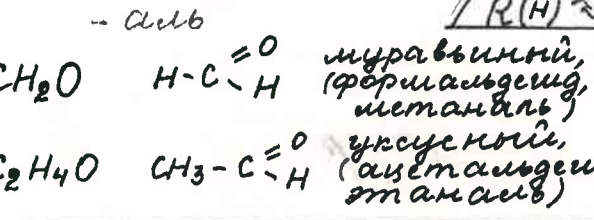 - аль
R(H)
CH₂O H-C=O H муравьиный,
(формальдегид,
метаналь)
C₂H₄O CH₃-C=O H уксусный,
(ацетальдеги
этаналь)